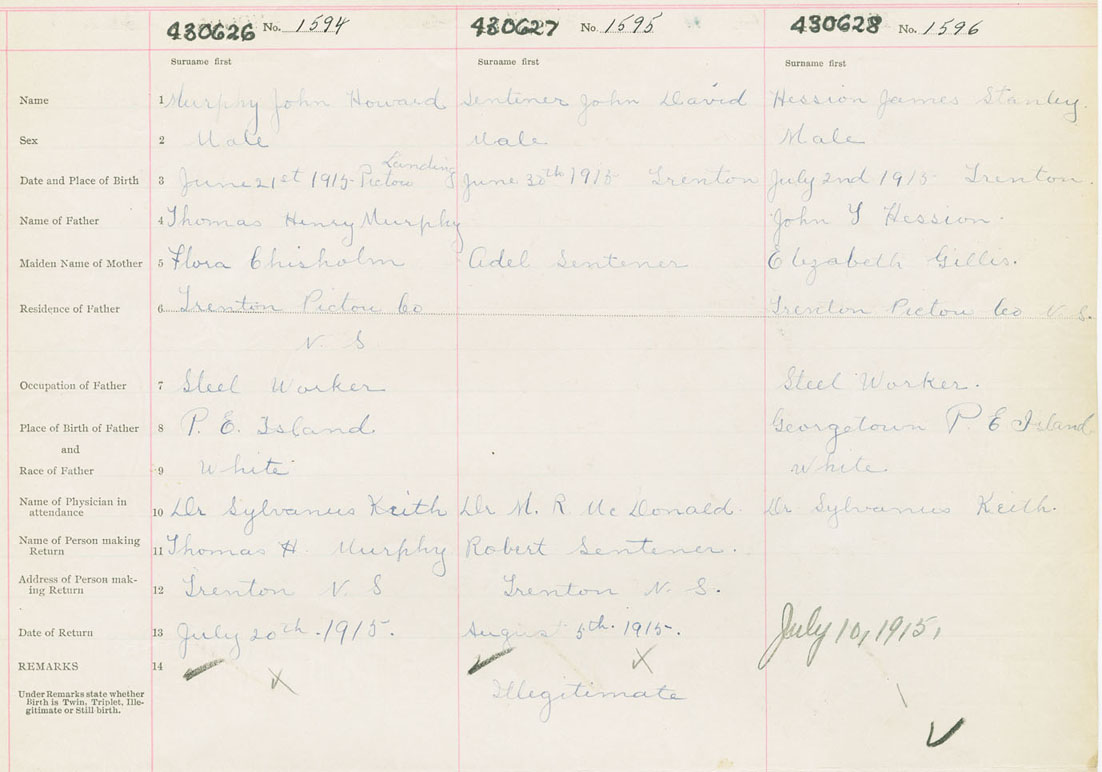 430626 No. 1594 430627 No. 1595 430628 No. 1596
Surname first Surname first Surname first
Name 1 Murphy John Howard Sentener John David Hession James Stanley.
Sex 2 Male Male Male
Landing
Date and Place of Birth 3 June 21st 1915 Pictou June 30th 1915 Trenton July 2nd 1915 Trenton.
Name of Father 4 Thomas Henry Murphy John Y Hession.
Maiden Name of Mother 5 Flora Chisholm Adel Sentener Elizabeth Gillis.
Residence of Father 6 Trenton Pictou Co Trenton Pictou Co N. S.
N. S
Occupation of Father 7 Steel Worker Steel Worker.
Place of Birth of Father 8 P. E. Island Georgetown P. E Island
and
Race of Father 9 White White
Name of Physician in
attendance 10 Dr Sylvanus Keith Dr M. R. McDonald. Dr Sylvanus Keith.
Name of Person making
Return 11 Thomas H. Murphy Robert Sentener.
Address of Person mak-
ing Return 12 Trenton N. S Trenton N. S.
Date of Return 13 July 20th. 1915. August 5th. 1915. July 10, 1915,
REMARKS 14
Under Remarks state whether
Birth is Twin, Triplet, Ille-
gitimate or Still-birth.
Illegitimate